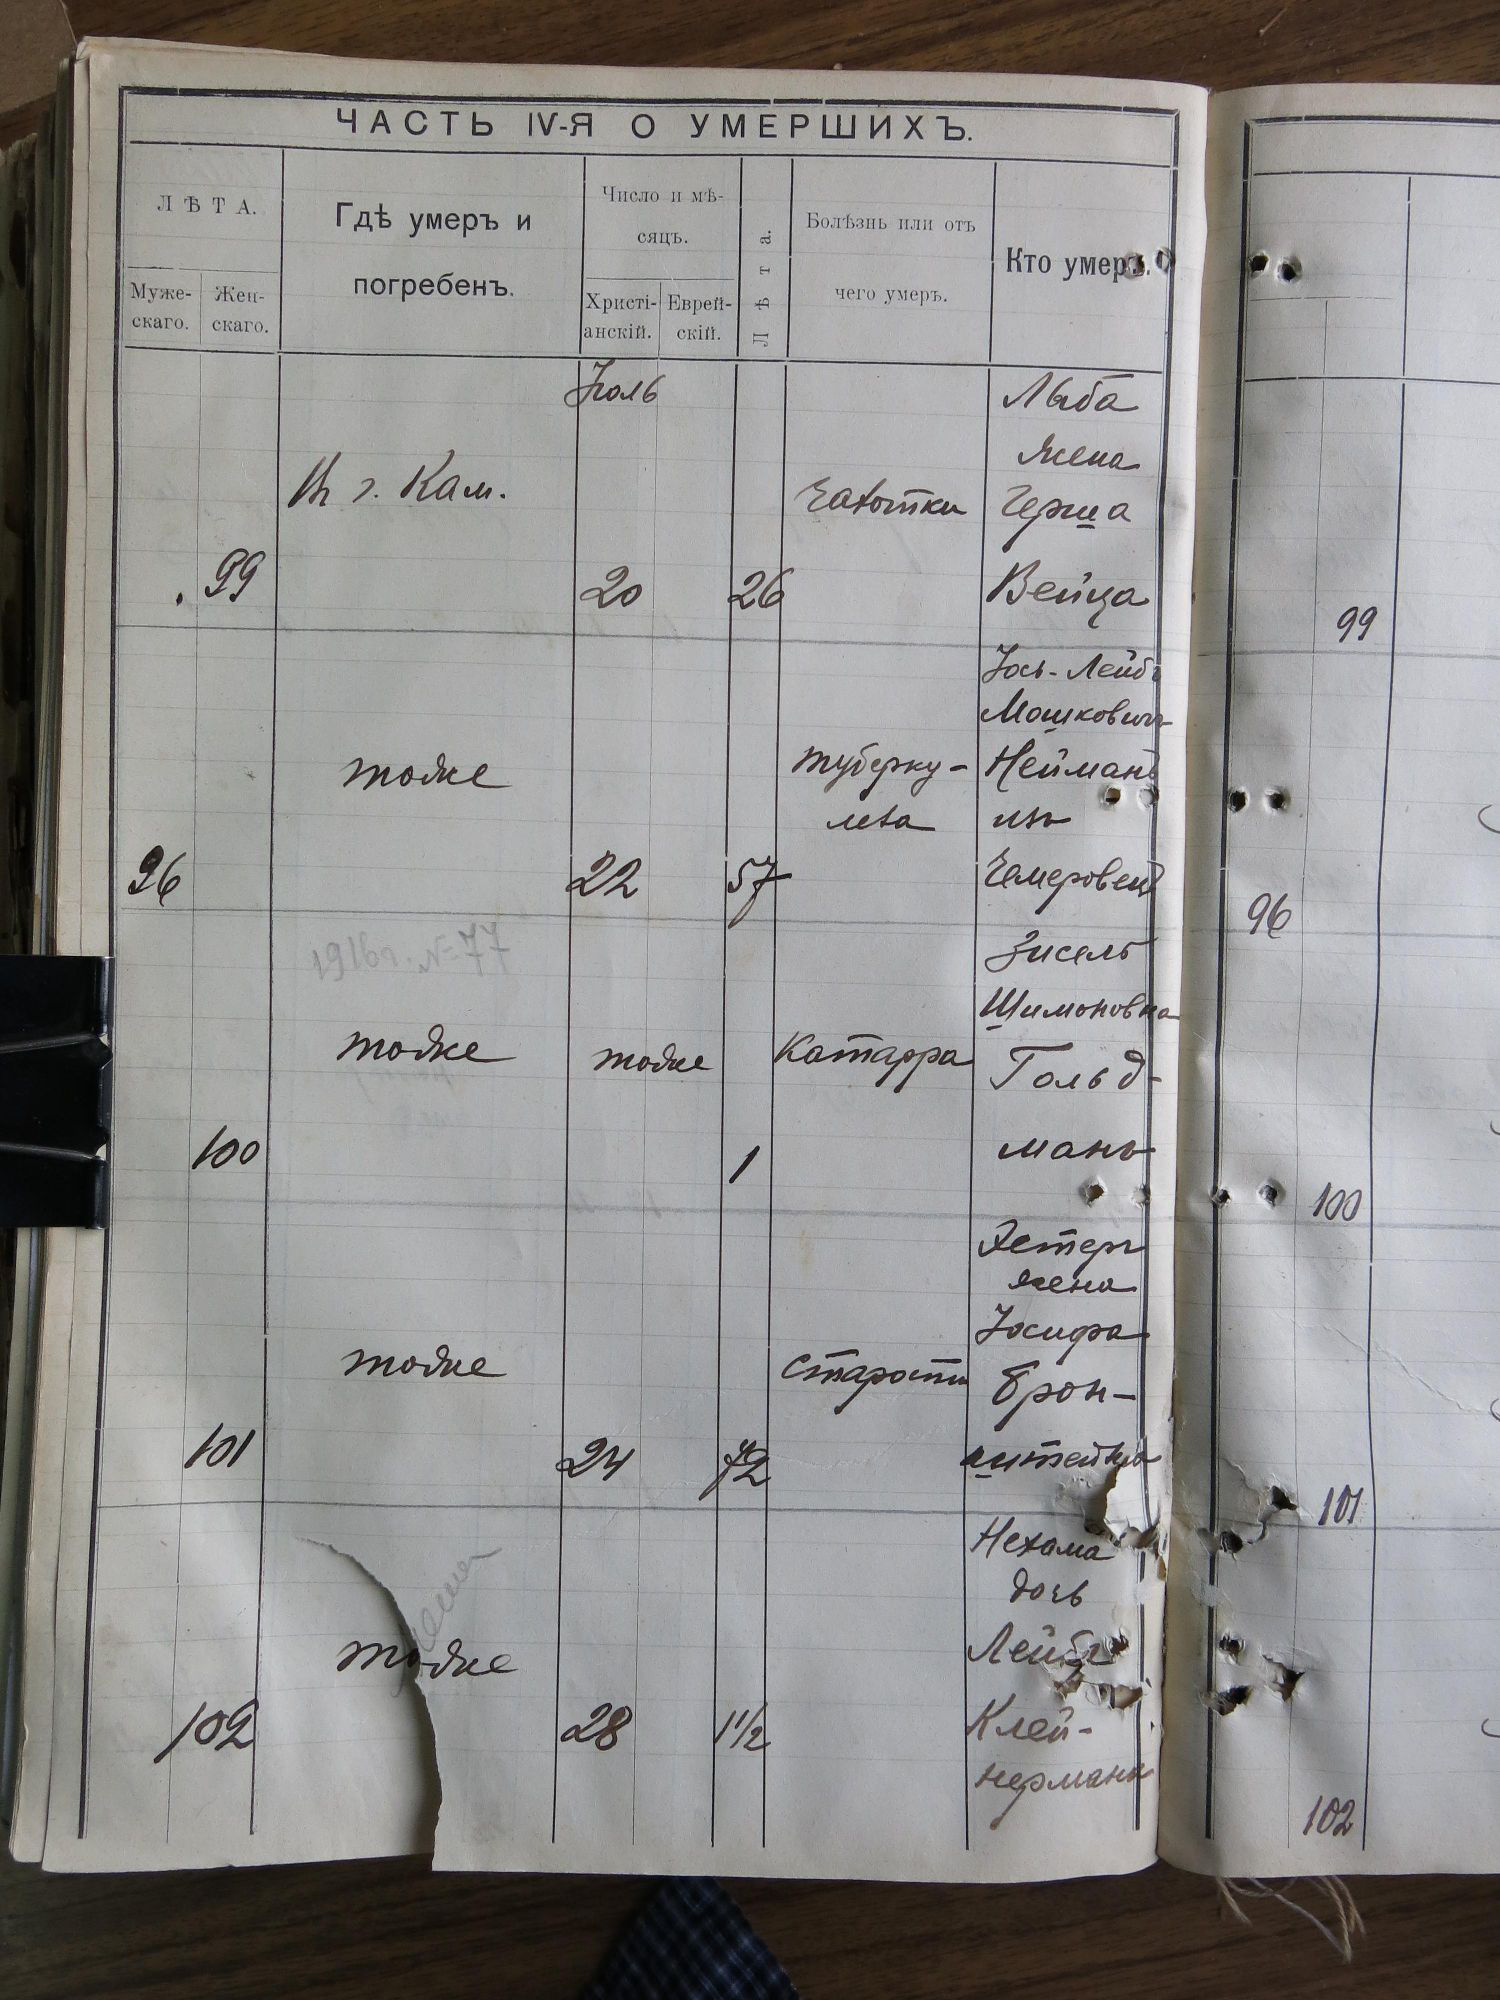 ЧАСТЬ IV-Я О УМЕРШИХЪ.
ЛѢТА.
Муже-
скаго.
Жен-
скаго.
Гдѣ умеръ и
погребенъ.
Число и мѣ-
сяцъ.
Христі-
анскій.
Еврей-
скій.
Лѣта.
Болѣзнь или отъ
чего умеръ.
Кто умеръ.
Іюль
Лыба
жена
В г. Кам.
Чахотки
Герша
99
20
26
Вейца
Іось-Лейбъ
Мошкович
тоже
туберку-
Нейманъ
леза
изъ
96
22
57
Чемеровец
1916 г. №77
Зисель
Шимоновна
тоже
тоже
Катарра
Гольд-
100
1
манъ
Эстеръ
жена
Іосифа
тоже
Старости
Брон-
101
24
72
штейна
Нехама
дочь
тоже
Лейбы
102
28
1 1/2
Клей-
нерманъ
99
96
100
101
102